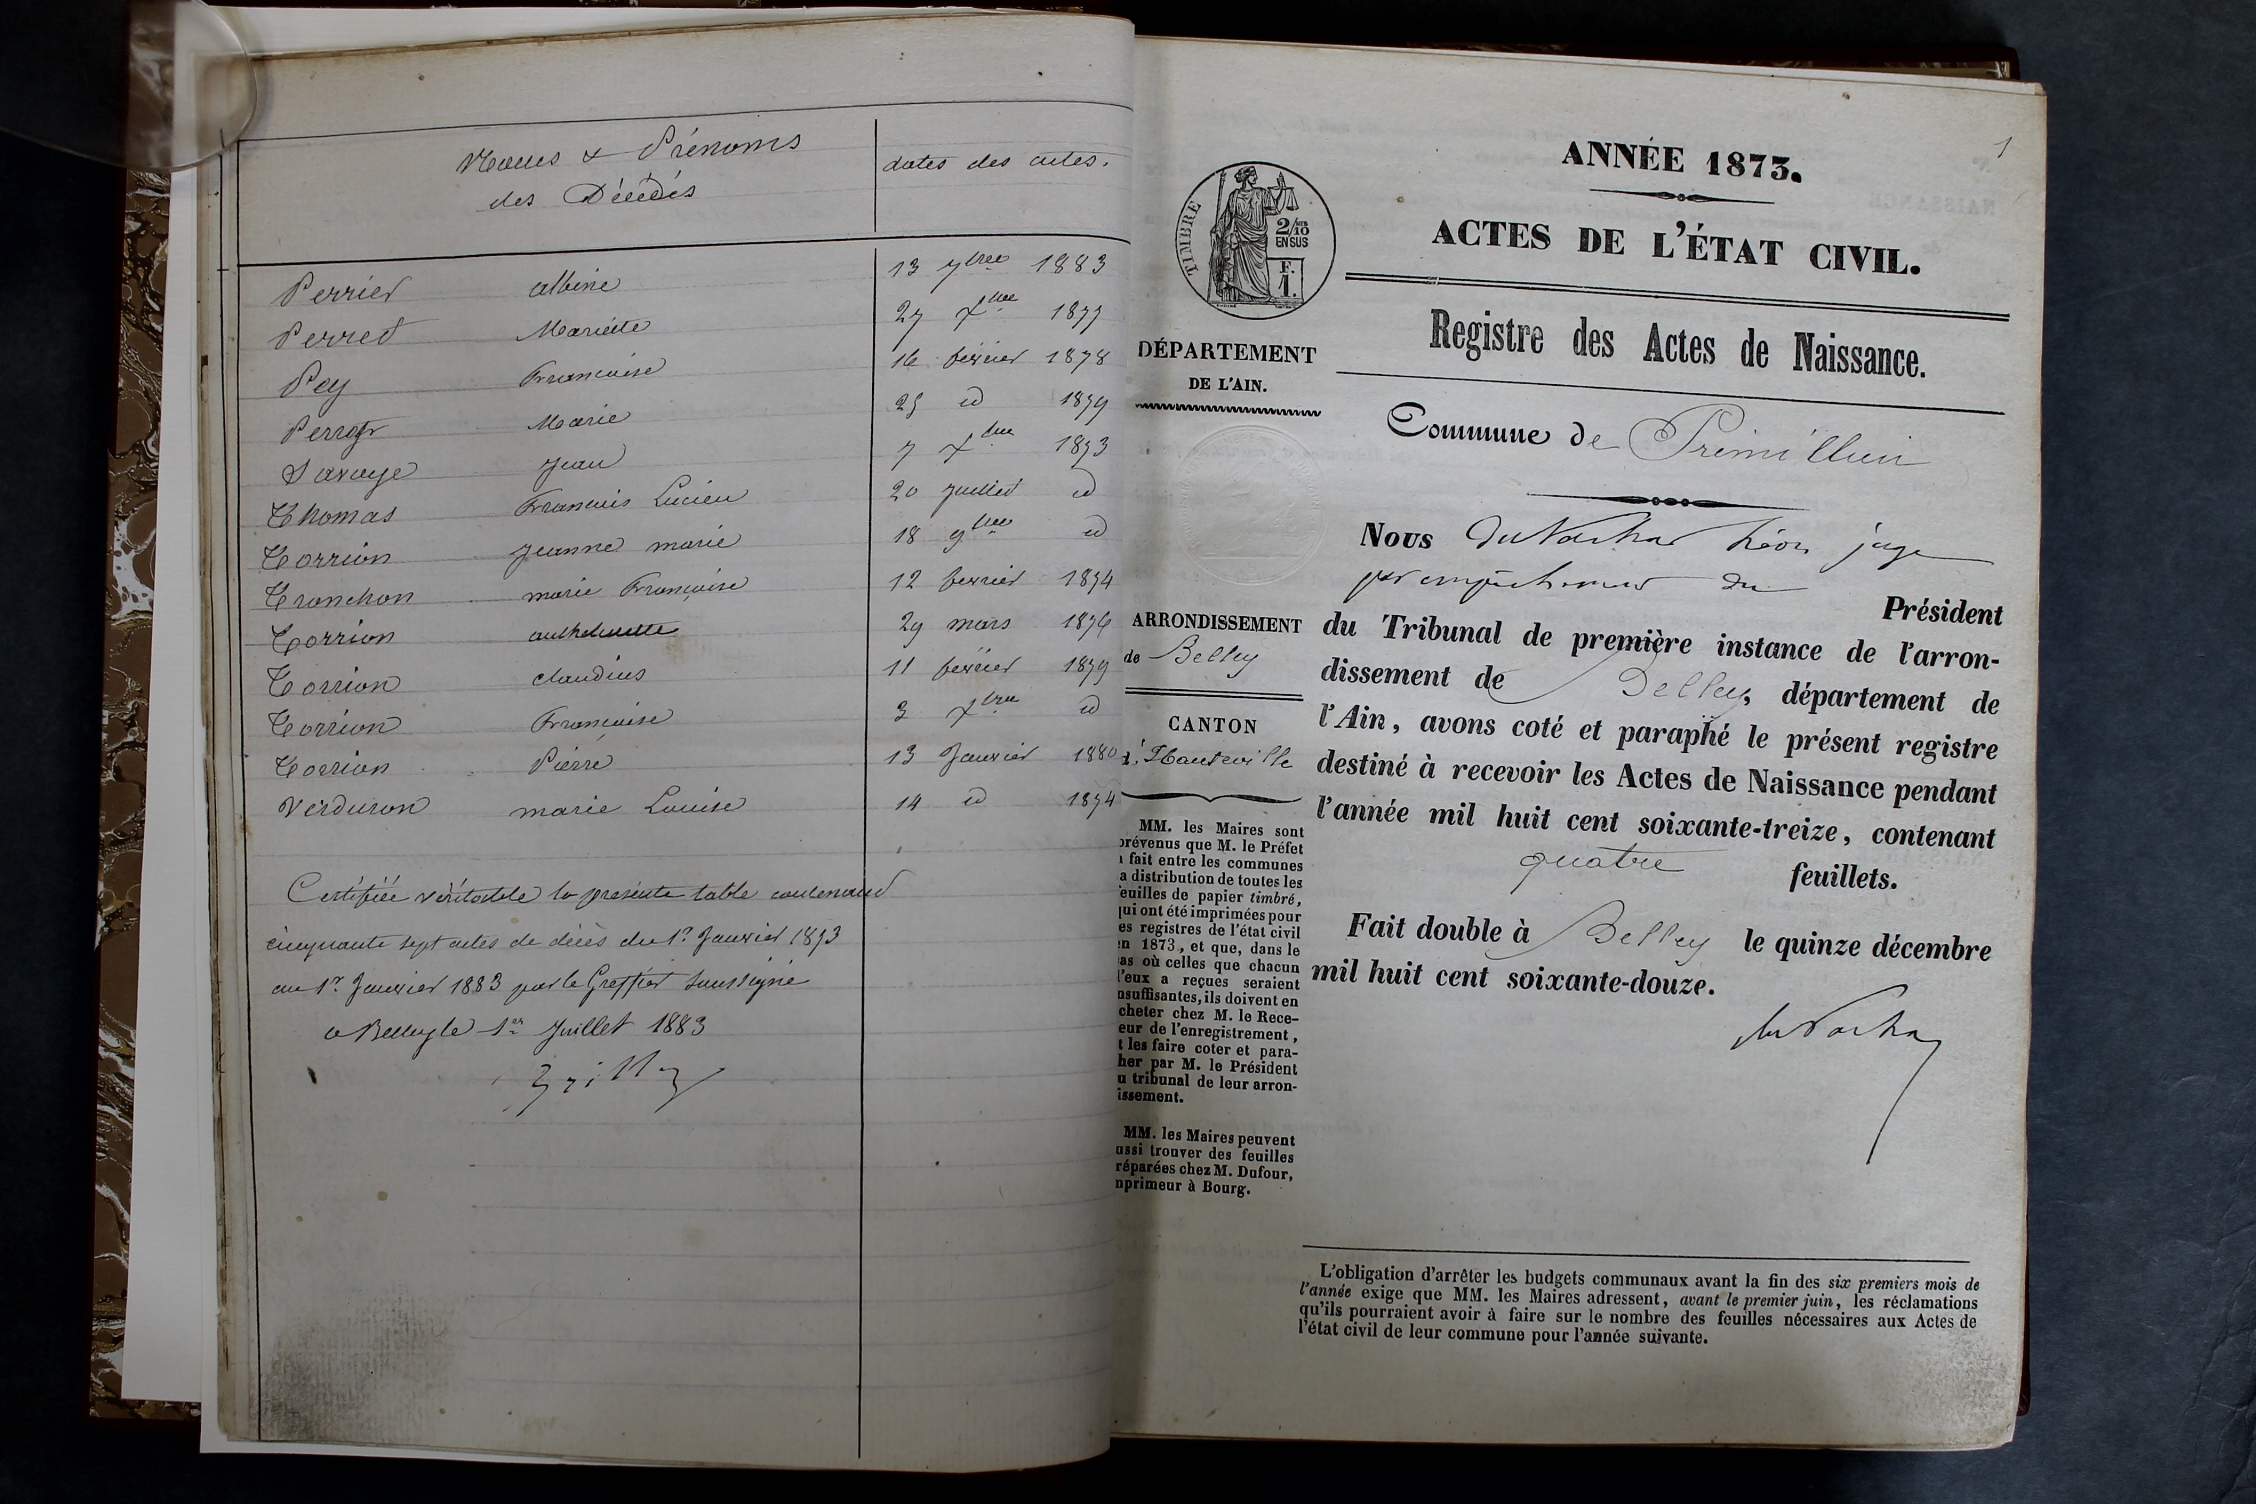 Noms & Prénoms
des Décédés
dates des actes.
Perrier Albine 13 7bre 1883
Perret Mariette 27 Xbre 1877
Pey Françoise 16 février 1878
Marie 25 id 1879
Savoye Jean 7 Xbre 1873
Thomas François Lucien 20 Juillet id
Torrion Jeanne marie 18 9bre id
Tronchon marie Françoise 12 fevrier 1874
Torrion anthelmette 29 mars 1876
Torrion claudius 11 février 1879
Torrion Françoise 3 Xbre id
Torrion Pierre 13 Janvier 1880
Verduron marie Louise 14 id 1874
Certifiée véritable la présente table contenant
cinquante sept actes de décès du 1er Janvier 1873
au 1er Janvier 1883 par le Greffier soussigné
a Belley le 1er Juillet 1883
1
ANNÉE 1873.
ACTES DE L'ÉTAT CIVIL.
TIMBRE
2/10
EN SUS
F.
1.
DÉPARTEMENT
DE L'AIN.
Registre des Actes de Naissance.
Commune de Prémillieu
ARRONDISSEMENT
de Belley
CANTON
d'Hauteville
Nous Léon juge
par empêchement du
Président
du Tribunal de première instance de l'arron-
dissement de Belley, département de
l'Ain, avons coté et paraphé le présent registre
destiné à recevoir les Actes de Naissance pendant
l'année mil huit cent soixante-treize, contenant
quatre feuillets.
Fait double à Belley le quinze décembre
mil huit cent soixante-douze.
MM. les Maires sont
prévenus que M. le Préfet
a fait entre les communes
la distribution de toutes les
feuilles de papier timbré,
qui ont été imprimées pour
les registres de l'état civil
en 1873, et que, dans le
cas où celles que chacun
d'eux a reçues seraient
insuffisantes, ils doivent en
acheter chez M. le Rece-
veur de l'enregistrement,
et les faire coter et para-
pher par M. le Président
du tribunal de leur arron-
dissement.
MM. les Maires peuvent
aussi trouver des feuilles
préparées chez M. Dufour,
imprimeur à Bourg.
L'obligation d'arrêter les budgets communaux avant la fin des six premiers mois de
l'année exige que MM. les Maires adressent, avant le premier juin, les réclamations
qu'ils pourraient avoir à faire sur le nombre des feuilles nécessaires aux Actes de
l'état civil de leur commune pour l'année suivante.